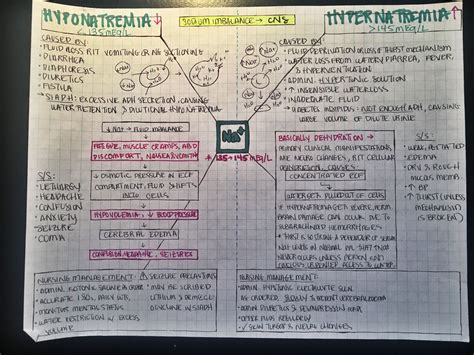 HYPONATREMIA ↓
<135 mEq/L
SODIUM IMBALANCE → CNS
HYPERNATREMIA ↑
>145 mEq/L
CAUSED BY:
• FLUID LOSS R/T VOMITING OR NG SUCTIONING
• DIARRHEA
• DIAPHORESIS
• DIURETICS
• FISTULA
→ SIADH: EXCESSIVE ADH SECRETION, CAUSING
WATER RETENTION > DILUTIONAL HYPONATREMIA
CAUSED BY:
• FLUID DEPRIVATION LOSS OF THIRST MECHANISM
• WATER LOSS FROM WATERY DIARRHEA, FEVER,
& HYPERVENTILATION
• ADMIN. HYPERTONIC SOLUTION
• ↑ INSENSIBLE WATER LOSS
• INADEQUATE FLUID
• DIABETES INSIPIDUS: NOT ENOUGH ADH, CAUSING
LARGE VOLUME OF DILUTE URINE
Na+
H₂O
Na+
135-145 mEq/L
↓ Na+ → FLUID IMBALANCE
FATIGUE, MUSCLE CRAMPS, ABD
DISCOMFORT, NAUSEA/VOMIT
↓ OSMOTIC PRESSURE IN ECF
COMPARTMENT, FLUID SHIFTS
INTO CELLS
HYPOVOLEMIA, ↓ BLOOD PRESSURE
CEREBRAL EDEMA
CONFUSION, HEADACHE, SEIZURES
S/S:
• LETHARGY
• HEADACHE
• CONFUSION
• ANXIETY
• SEIZURE
• COMA
BASICALLY DEHYDRATION →
PRIMARY CLINICAL MANIFESTATIONS
ARE NEURO CHANGES, R/T CELLULAR
DEHYDRATION, CAUSES:
CONCENTRATED ECF
WATER GETS PULLED OUT OF CELLS
• IF HYPERNATREMIA GETS SEVERE, PERM
BRAIN DAMAGE CAN OCCUR DUE TO
SUBARACHNOID HEMORRHAGES
• THIRST IS SO STRONG A DEFENDER OF SERUM
Na+ LEVELS IN NORMAL PPL THAT THIS
NEVER OCCURS UNLESS PERSON IS
S/S:
• WEAK, IRRITATED
• EDEMA
• DRY & ROUGH
MUCUS MEMB.
• ↑ BP
• ↑ THIRST (UNLESS
MECHANISM
IS BROKEN)
NURSING MANAGEMENT: ⚠ SEIZURE PRECAUTIONS
• ADMIN. ISOTONIC SALINE AS ORDER
• ACCURATE I&O'S, DAILY WTS.
• MONITOR MENTAL STATUS
• WATER RESTRICTION W/ EXCESS
VOLUME
• MAY BE SCRIBED
NURSING MANAGEMENT:
• ADMIN. HYPOTONIC ELECTROLYTE SOLN
AS ORDERED, SLOWLY TO PREVENT CEREBRAL EDEMA
• OFFER FLUIDS REGULARLY
✓ SKIN TURGOR & NEURO CHANGES